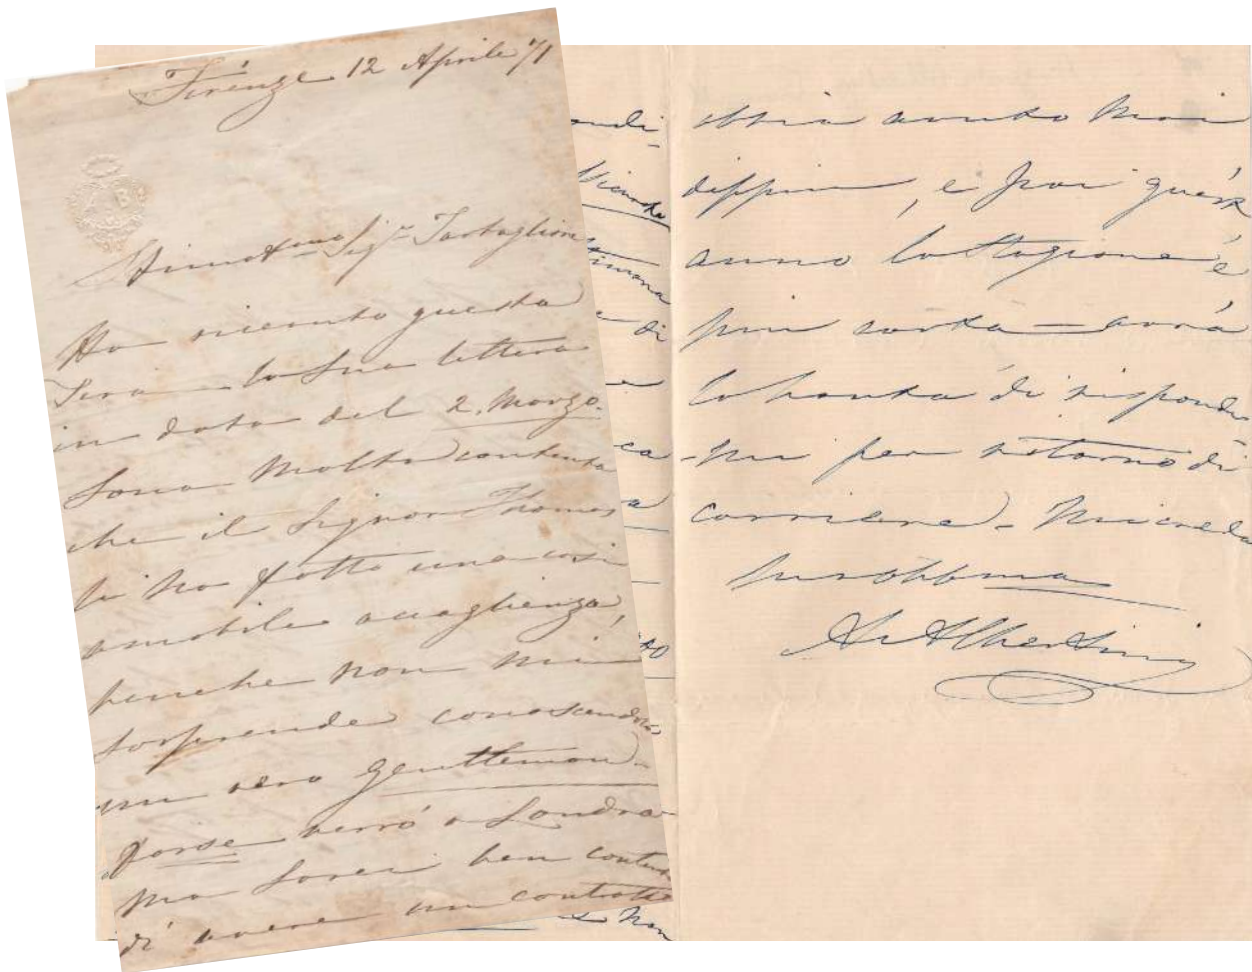 Firenze 12 Aprile 71
AB
Stimatmo Sigr Tartaglione
Ho ricevuto questa
Sera la Sua lettera
in data del 2. Marzo.
Sono molto contenta
che il Signor Thomas
Li ha fatto una cosi
amabile accaglienza,
benche non mi
sorprende conoscendolo
un vero gentleman.
Forse verró a Londra
ma sarei ben contenta
di avere un contratto
ndi-
di
ca
a
non
abbia avuto mai
dippiu, e poi quest
anno la Stagione è
piu corta — avrá
la bontá di risponder
-mi per ritorno di
corriere - Mi creda